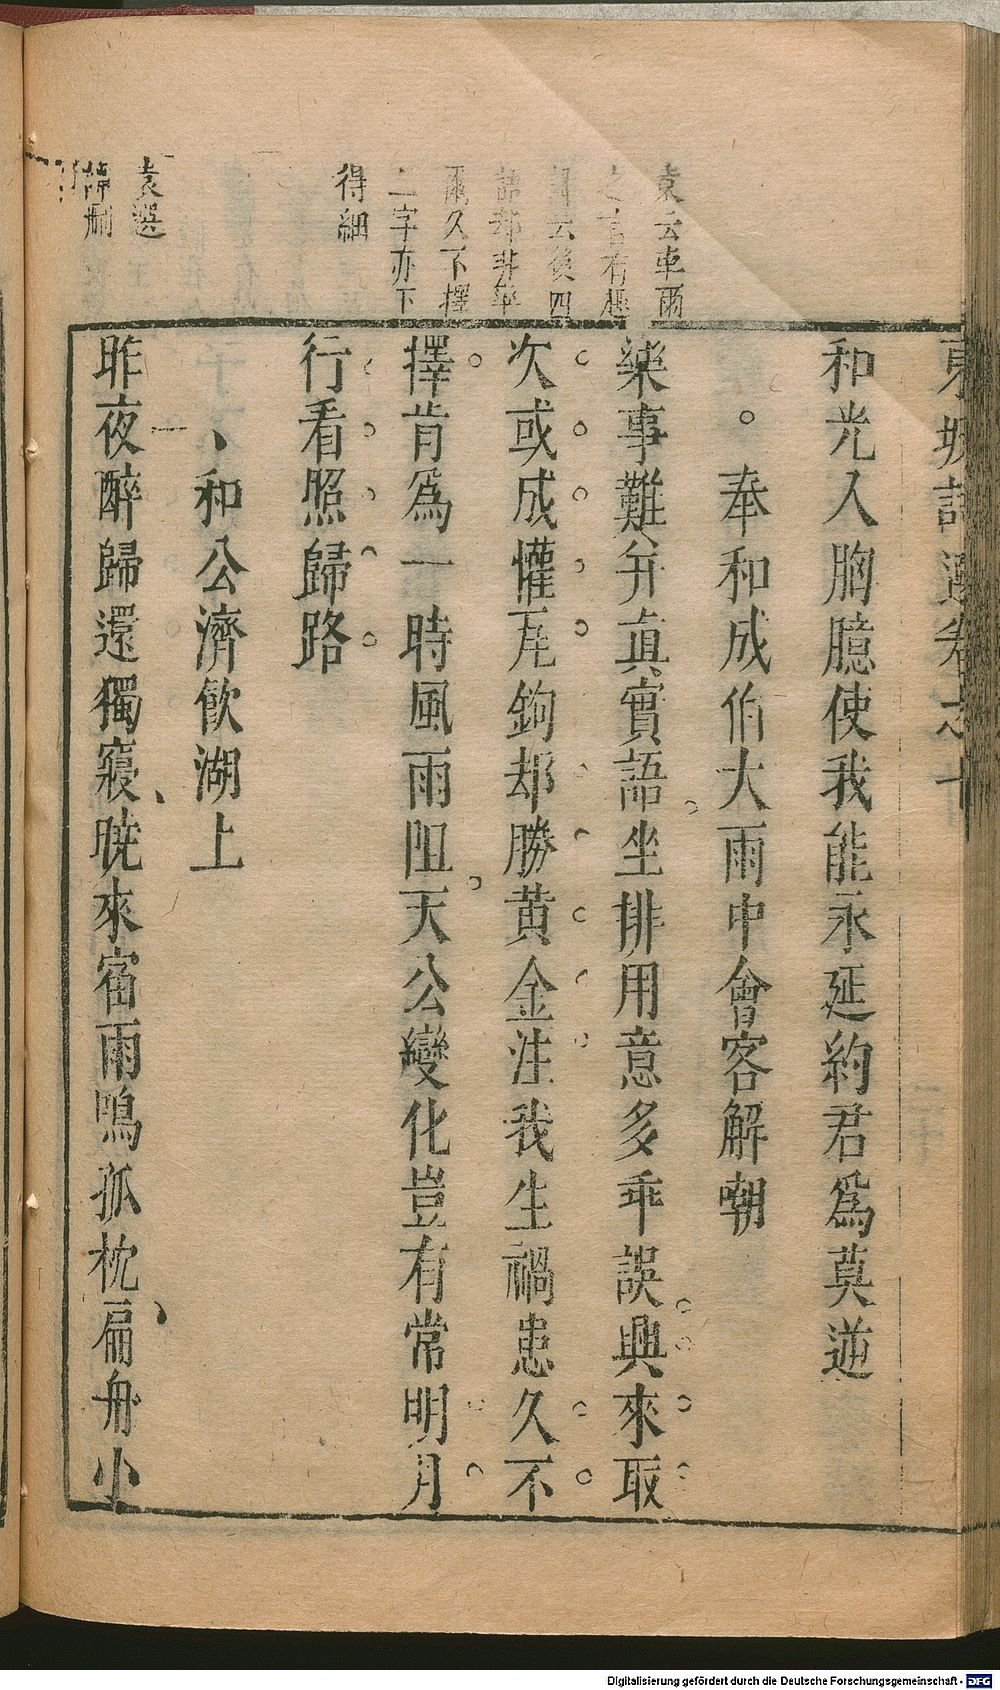 東坡詩選卷之十
和光入胸臆使我能永延約君爲莫逆
奉和成伯大雨中會客解嘲
樂事難并真實語坐排用意多乖誤興來取
次或成懽瓦鉤却勝黄金注我生禍患久不
擇肯爲一時風雨阻天公變化豈有常明月
行看照歸路
和公濟飲湖上
昨夜醉歸還獨寢曉來宿雨鳴孤枕扁舟小
袁云車雨
之言有趣
云後四
語却非

久不擇
二字亦下
得細
袁選
刪
Digitalisierung gefördert durch die Deutsche Forschungsgemeinschaft - DFG